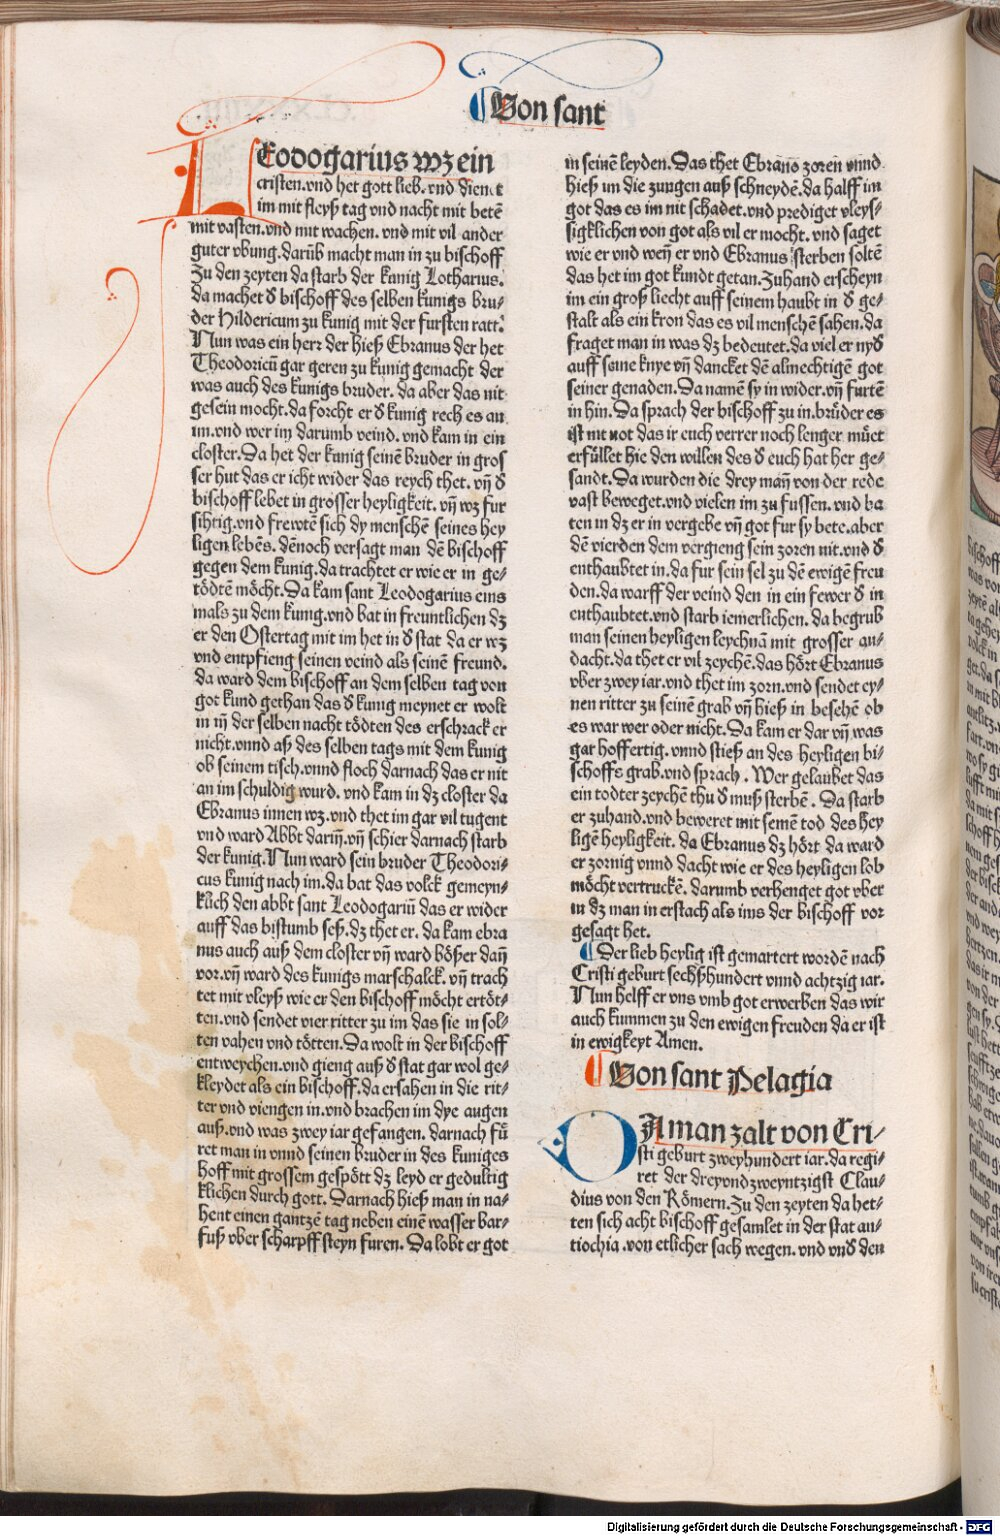 Von sant
LEodogarius wz ein
cristen.vnd het gott lieb.vnd dienet
im mit fleyß tag vnd nacht mit betē
mit vasten.vnd mit wachen. vnd mit vil ander
guter vbung.darūb macht man in zu bischoff
Zu den zeyten da starb der kunig Lotharius.
da machet d̄ bischoff des selben kunigs bru⸗
der Hildericum zu kunig mit der fursten ratt.
Nun was ein herr der hieß Ebranus der het
Theodoricū gar geren zu kunig gemacht der
was auch des kunigs bruder. da aber das nit
gesein mocht.da forcht er d̄ kunig rech es an
im.vnd wer im darumb veind. vnd kam in ein
closter.Da het der kunig seinē bruder in gros
ser hut das er icht wider das reych thet. vn̄ d̄
bischoff lebet in grosser heyligkeit. vn̄ wz fur
sihtig.vnd frewtē sich dy menschē seines hey
ligen lebēs. dēnoch versagt man dē bischoff
gegen dem kunig.da trachtet er wie er in ge⸗
tödtē möcht.Da kam sant Leodogarius eins
mals zu dem kunig.vnd bat in freuntlichen dz
er den Ostertag mit im het in d̄ stat da er wz
vnd entpfieng seinen veind als seinē freund.
da ward dem bischoff an dem selben tag von
got kund gethan das d̄ kunig meynet er wolt
in in der selben nacht tödten des erschrack er
nicht.vnnd aß des selben tags mit dem kunig
ob seinem tisch.vnnd floch darnach das er nit
an im schuldig wurd. vnd kam in dz closter da
Ebranus innen wz.vnd thet im gar vil tugent
vnd ward Abbt darin̄.vn̄ schier darnach starb
der kunig.Nun ward sein bruder Theodori⸗
cus kunig nach im.da bat das volck gemeyn⸗
klich den abbt sant Leodogariū das er wider
auff das bistumb seß.dz thet er. da kam ebra
nus auch auß dem closter vn̄ ward bößer dan̄
vor.vn̄ ward des kunigs marschalck. vn̄ trach
tet mit vleyß wie er den bischoff möcht ertöt⸗
ten.vnd sendet vier ritter zu im das sie in sol⸗
ten vahen vnd tötten.Da wolt in der bischoff
entweychen.vnd gieng auß d̄ stat gar wol ge⸗
kleydet als ein bischoff.da ersahen in die rit⸗
ter vnd viengen in.vnd brachen im dye augen
auß.vnd was zwey iar gefangen. darnach fů
ret man in vnnd seinen bruder in des kuniges
hoff mit grossem gespött dz leyd er gedultig
klichen durch gott. Darnach hieß man in na⸗
hent einen gantzē tag neben einē wasser bar⸗
fuß vber scharpff steyn furen. Da lobt er got
in seinē leyden.Das thet Ebrans zoren vnnd
hieß im die zungen auß schneydē.da halff im
got das es im nit schadet.vnd prediget vleys⸗
sigklichen von got als vil er mocht. vnd saget
wie er vnd wen̄ er vnd Ebranus sterben soltē
das het im got kundt getan.Zuhand erscheyn
im ein groß liecht auff seinem haubt in d̄ ge⸗
stalt als ein kron das es vil menschē sahen.da
fraget man in was dz bedeutet.da viel er nyd̄
auff seine knye vn̄ dancket dē almechtigē got
seiner genaden.Da namē sy in wider.vn̄ furtē
in hin.Da sprach der bischoff zu in.brůder es
ist nit not das ir euch verrer noch lenger můet
erfüllet hie den willen des d̄ euch hat her ge⸗
sandt.Da wurden die drey man̄ von der rede
vast beweget.vnd vielen im zu fussen. vnd ba
ten in dz er in vergebe vn̄ got fur sy bete.aber
dē vierden dem vergieng sein zoren nit.vnd d̄
enthaubtet in.da fur sein sel zu dē ewigē freu
den.da warff der veind den in ein fewer d̄ in
enthaubtet.vnd starb iemerlichen. da begrub
man seinen heyligen leychnā mit grosser an⸗
dacht.da thet er vil zeychē.das hört Ebranus
vber zwey iar.vnd thet im zorn.vnd sendet ey⸗
nen ritter zu seinē grab vn̄ hieß in besehē ob
es war wer oder nicht.Da kam er dar vn̄ was
gar hoffertig. vnnd stieß an des heyligen bi⸗
schoffs grab.vnd sprach. Wer gelaubet das
ein todter zeychē thu d̄ muß sterbē. Da starb
er zuhand.vnd beweret mit seinē tod des hey
ligē heyligkeit. da Ebranus dz hört da ward
er zornig vnnd dacht wie er des heyligen lob
möcht vertruckē. darumb verhenget got vber
in dz man in erstach als ims der bischoff vor
gesagt het.
Der lieb heylig ist gemartert wordē nach
Cristi geburt sechßhundert vnnd achtzig iar.
Nun helff er vns vmb got erwerben das wir
auch kummen zu den ewigen freuden da er ist
in ewigkeyt Amen.
Von sant Pelagia
DA man zalt von Cri⸗
sti geburt zweyhundert iar.da regi⸗
ret der dreyvndzweyntzigst Clau⸗
dius von den Römern.Zu den zeyten da het⸗
ten sich acht bischoff gesamlet in der stat an⸗
tiochia.von etlicher sach wegen. vnd vnd̄ den
Digitalisierung gefördert durch die Deutsche Forschungsgemeinschaft - DFG